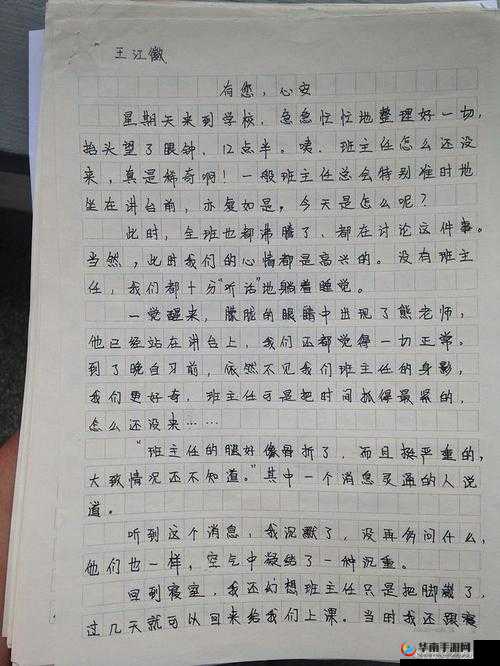 王江徽
有您，心安
星期天来到学校，急急忙忙地整理好一切，
抬头望了眼钟，12点半。咦，班主任怎么还没
来，真是稀奇啊！一般班主任总会特别准时地
坐在讲台前，亦复如是，今天是怎么呢？
此时，全班也都沸腾了，都在讨论这件事。
当然，此时我们的心情都是高兴的。没有班主
任，我们都十分“听话”地躺着睡觉。
一觉醒来，朦胧的眼睛中出现了熊老师，
他已经站在讲台上，我们还都觉得一切正常。
到了晚自习前，依然不见我们班主任的身影，
我们更好奇，班主任可是把时间抓得最紧的，
怎么还没来……
“班主任的腿好像骨折了，而且挺严重的，
大致情况还不知道。”其中一个消息灵通的人说
道。
听到这个消息，我沉默了，没再多问什么，
他们也一样，空气中凝结了一种沉重。
回到寝室，我还幻想班主任只是把脚崴了，
过几天就可以回来给我们上课。当时我还跟寝
华南手游网